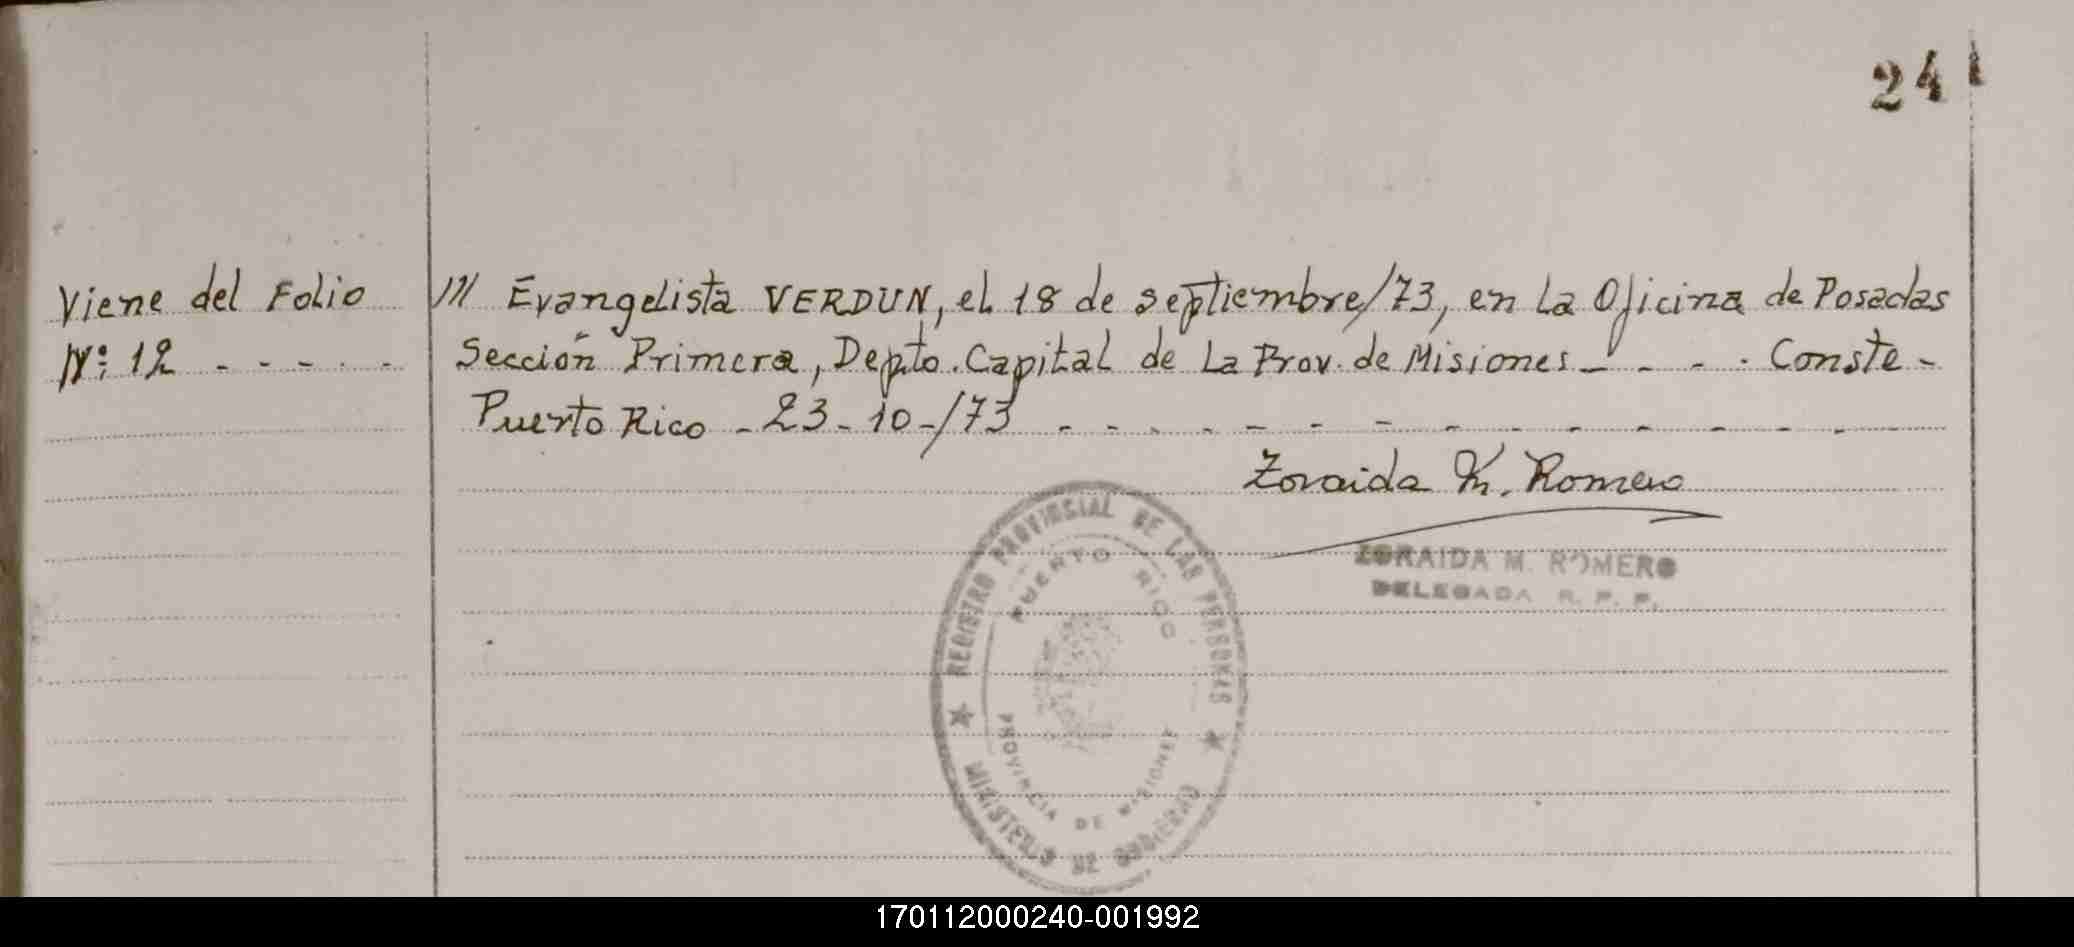 241
Viene del Folio
Nº: 12 - - - - -
/// Evangelista VERDUN, el 18 de septiembre/73, en la Oficina de Posadas
Sección Primera, Depto. Capital de La Prov. de Misiones - - - - Conste -
Puerto Rico - 23 - 10 -/73 - - - - - - - - - - - - - -
Zoraida M. Romero
ZORAIDA M. ROMERO
DELEGADA R. P. P.
REGISTRO PROVINCIAL DE LAS PERSONAS
PUERTO RICO
PROVINCIA DE MISIONES
MINISTERIO DE GOBIERNO
170112000240-001992